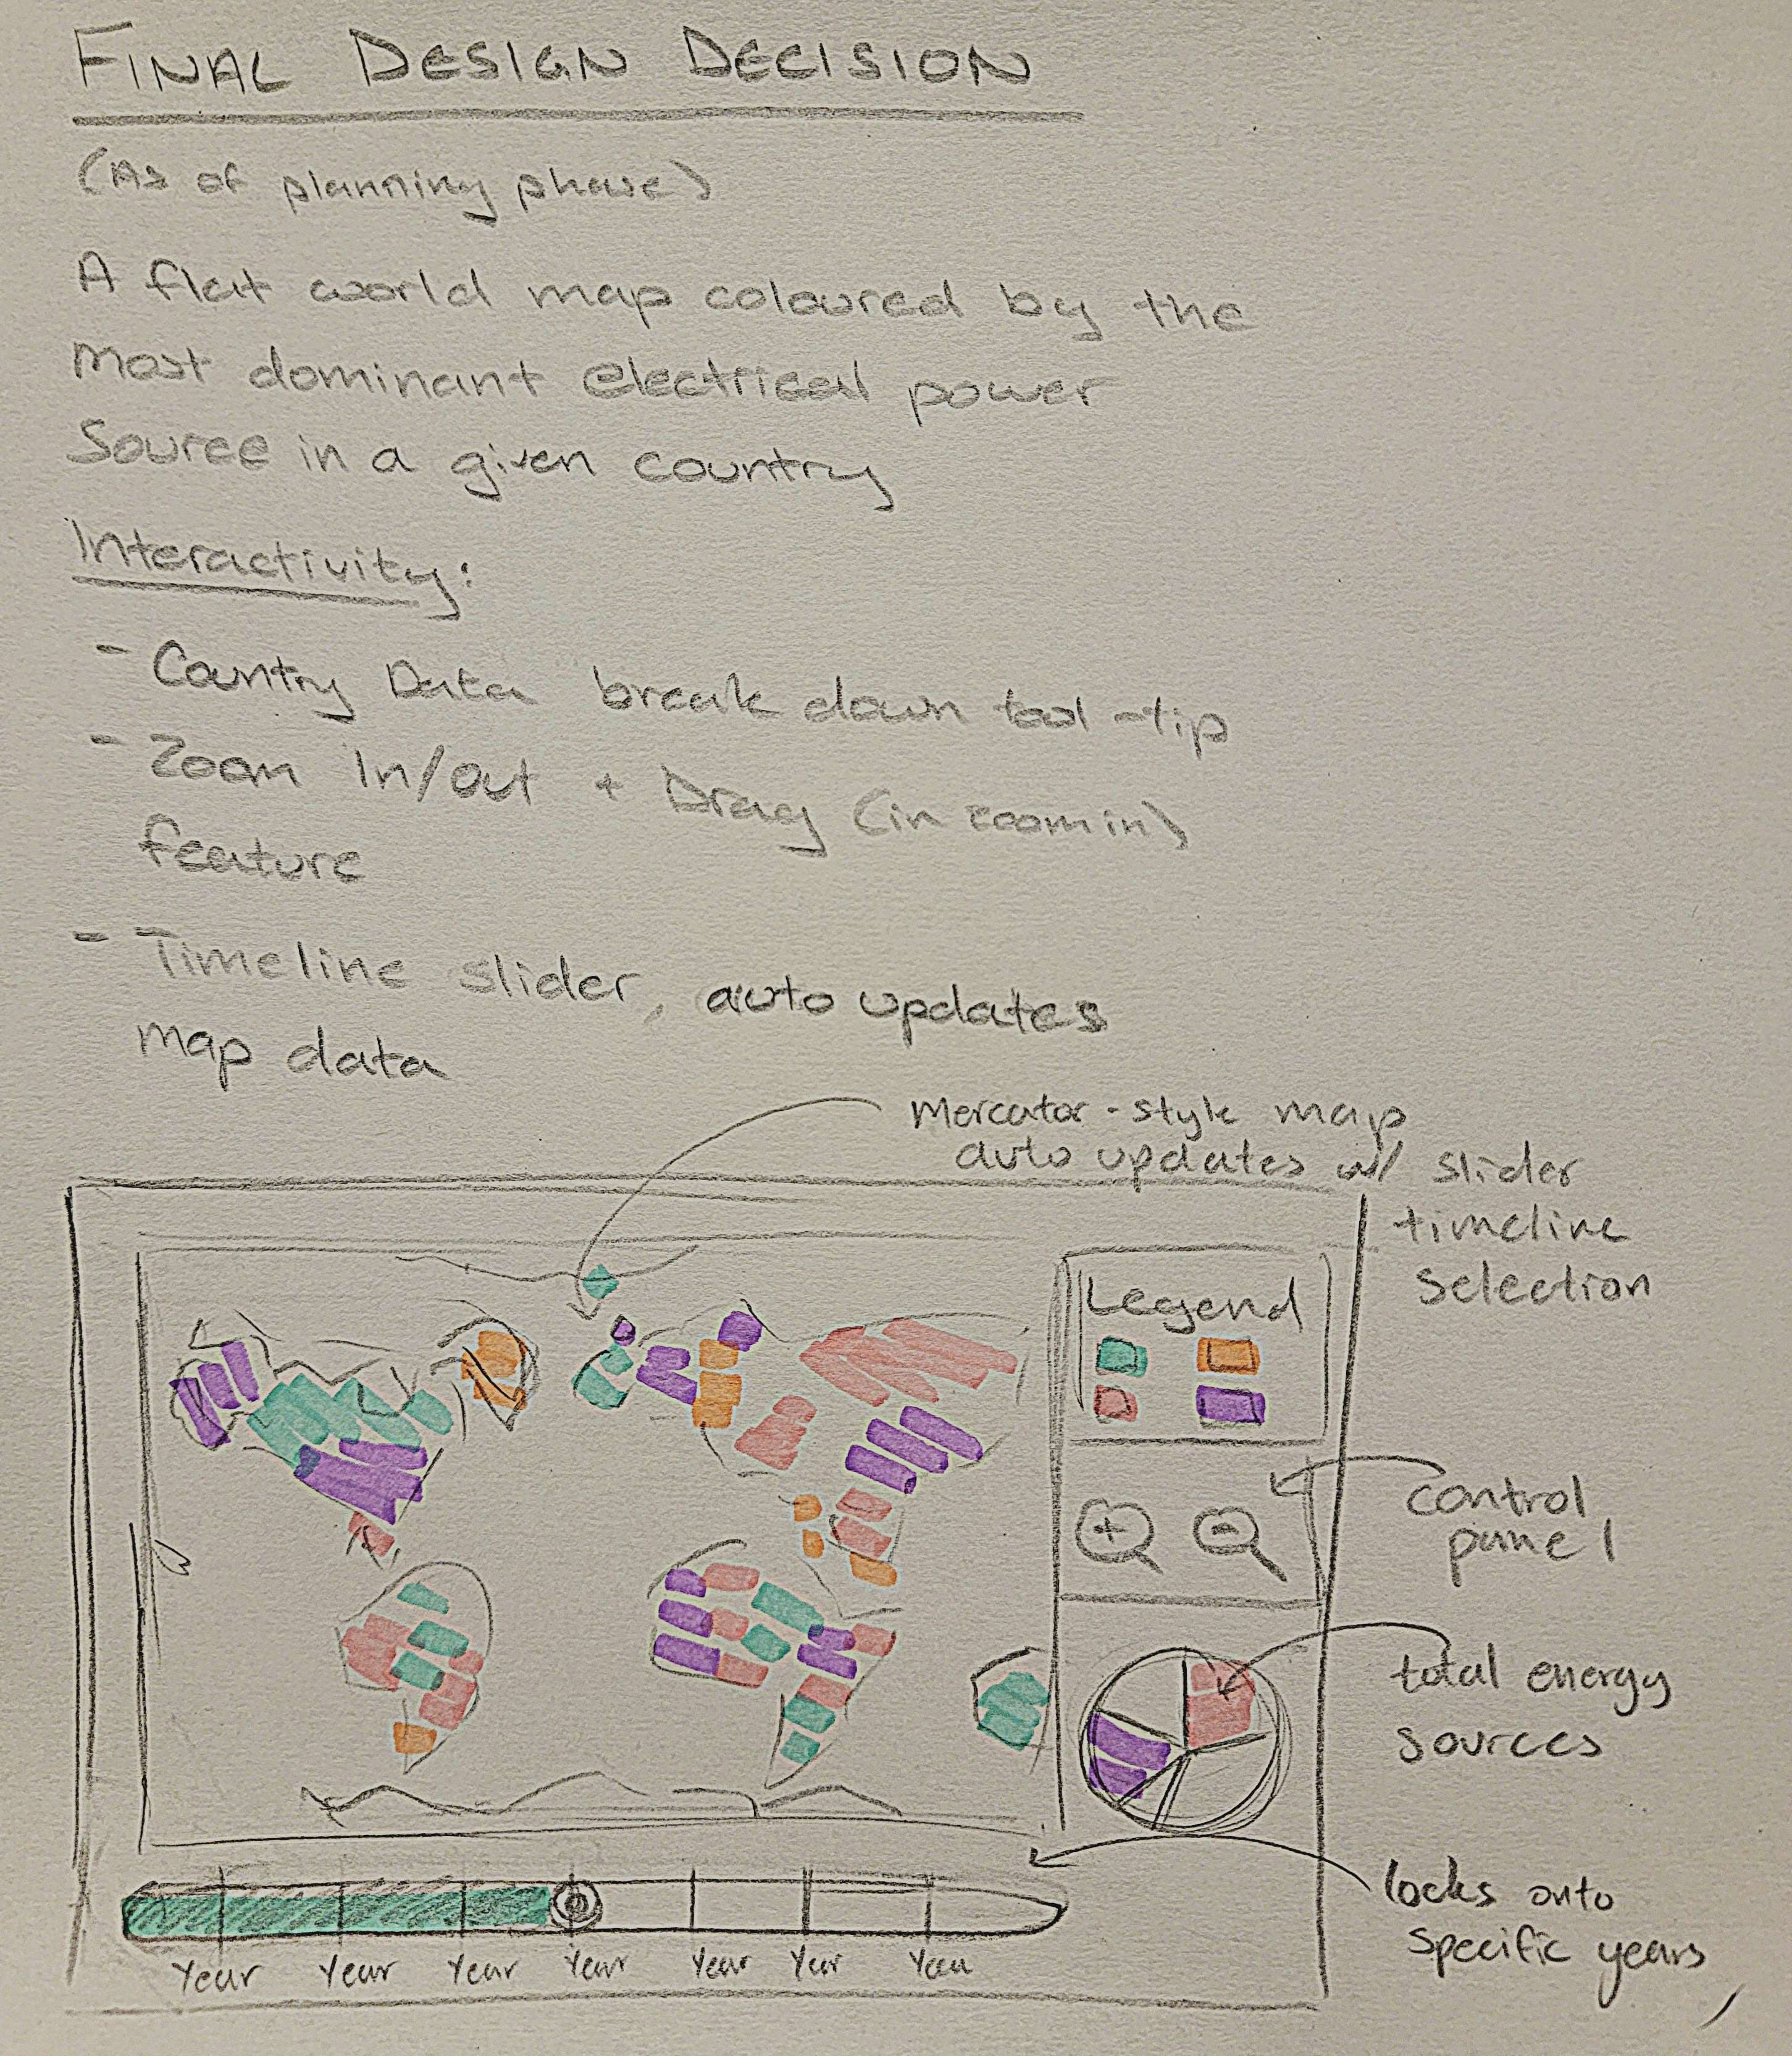 FINAL DESIGN DECISION
(As of planning phase)
A flat world map coloured by the
most dominant electrical power
Source in a given country
Interactivity:
- Country Data break down tool-tip
- Zoom In/Out + Drag (in zoom in)
feature
- Timeline slider, auto updates
map data
Mercator-style map
auto updates w/ slider
timeline
selection
Legend
control
panel
total energy
sources
locks onto
specific years
Year Year Year Year Year Year Year